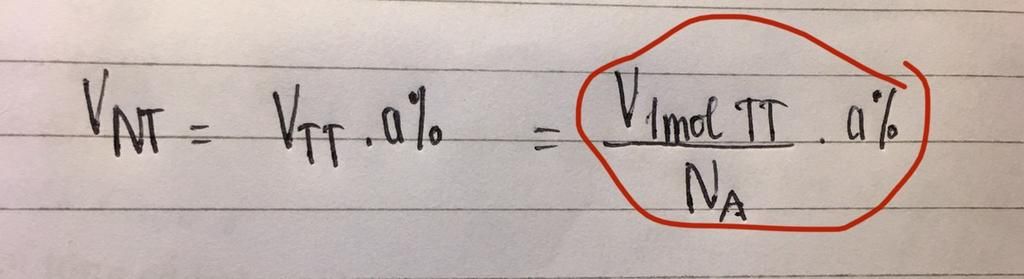 V_NT = V_TT . a% = V_1mol TT / N_A . a%